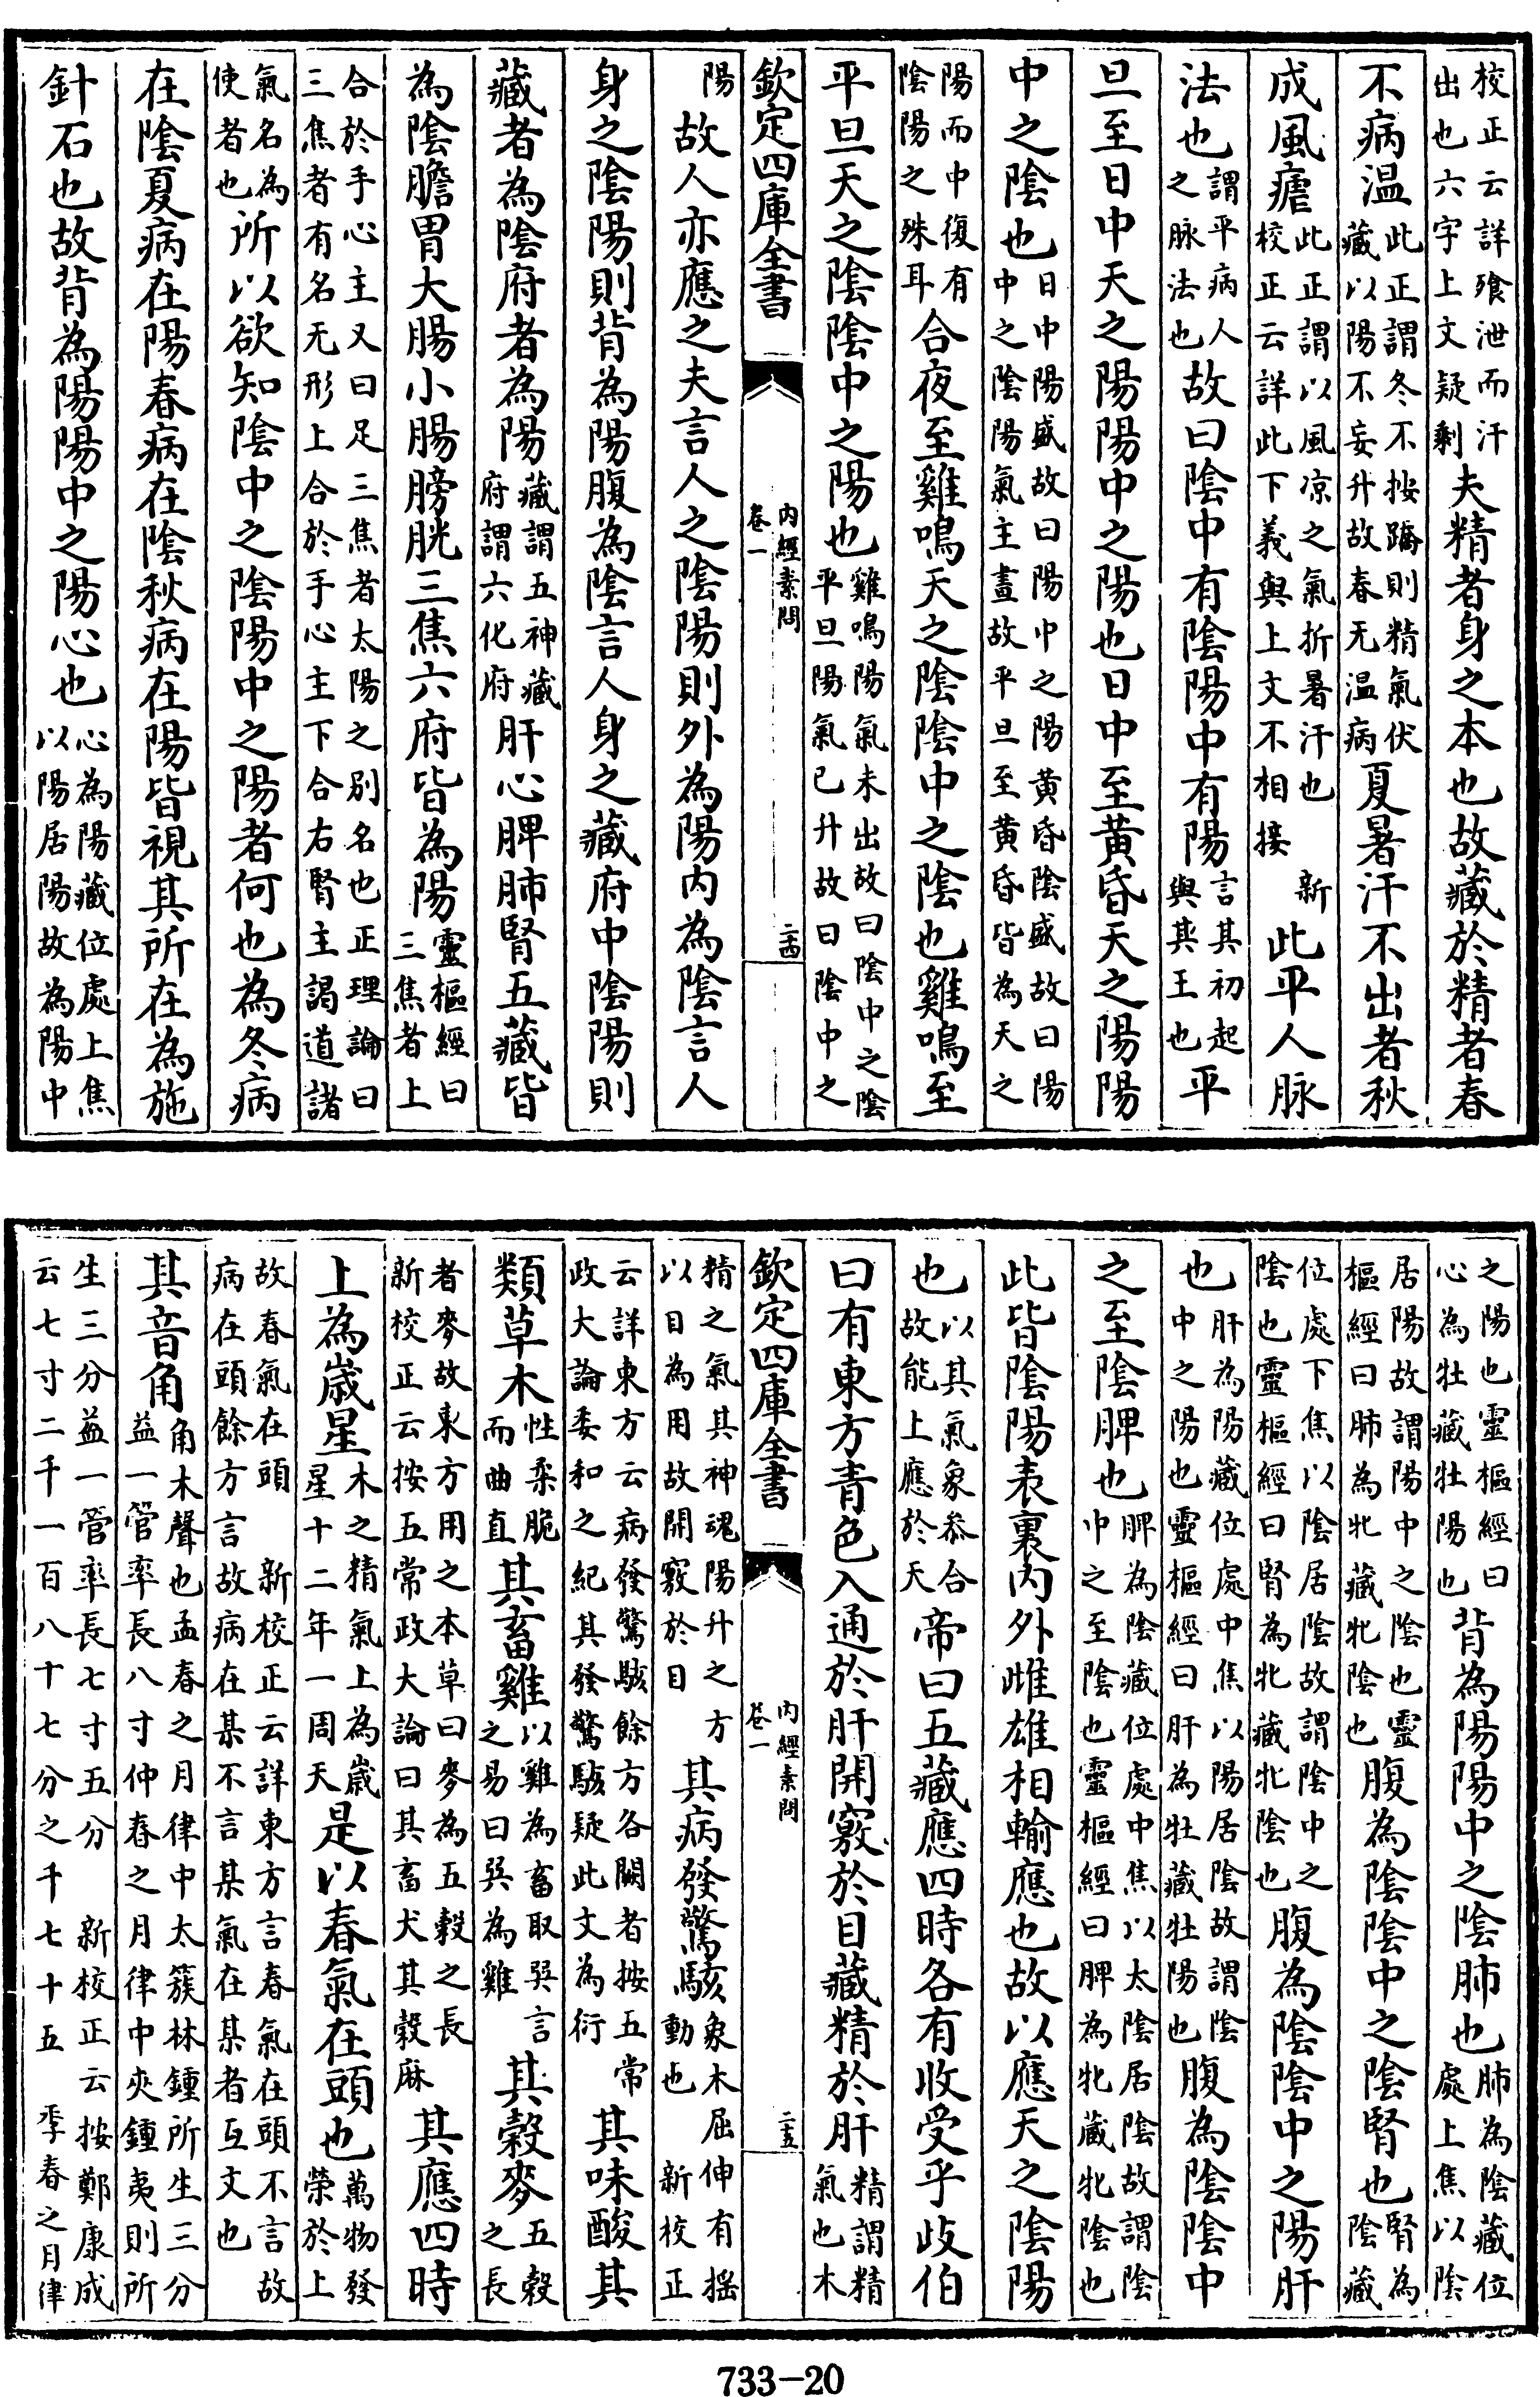 校正云詳飱泄而汗出也六字上文疑剩夫精者身之本也故藏於精者春
不病温此正謂冬不按蹻則精氣伏藏以陽不妄升故春无温病夏暑汗不出者秋
成風瘧此正謂以風凉之氣折暑汗也新校正云詳此下義與上文不相接此平人脉
法也謂平病人之脉法也故曰陰中有陰陽中有陽言其初起與其王也平
旦至日中天之陽陽中之陽也日中至黄昏天之陽陽
中之陰也日中陽盛故曰陽中之陽黄昏陰盛故曰陽中之陰陽氣主晝故平旦至黄昏皆為天之
陽而中復有陰陽之殊耳合夜至雞鳴天之陰陰中之陰也雞鳴至
平旦天之陰陰中之陽也雞鳴陽氣未出故曰陰中之陰平旦陽氣已升故曰陰中之
欽定四庫全書 內經素問 卷一 二十四
陽故人亦應之夫言人之陰陽則外為陽内為陰言人
身之陰陽則背為陽腹為陰言人身之藏府中陰陽則
藏者為陰府者為陽藏謂五神藏府謂六化府肝心脾肺腎五藏皆
為陰膽胃大腸小腸膀胱三焦六府皆為陽靈樞經曰三焦者上
合於手心主又曰足三焦者太陽之别名也正理論曰三焦者有名无形上合於手心主下合右腎主謁道諸
氣名為使者也所以欲知陰中之陰陽中之陽者何也為冬病
在陰夏病在陽春病在陰秋病在陽皆視其所在為施
針石也故背為陽陽中之陽心也心為陽藏位處上焦以陽居陽故為陽中
之陽也靈樞經曰心為牡藏牡陽也背為陽陽中之陰肺也肺為陰藏位處上焦以陰
居陽故謂陽中之陰也靈樞經曰肺為牝藏牝陰也腹為陰陰中之陰腎也腎為陰藏
位處下焦以陰居陰故謂陰中之陰也靈樞經曰腎為牝藏牝陰也腹為陰陰中之陽肝
也肝為陽藏位處中焦以陽居陰故謂陰中之陽也靈樞經曰肝為牡藏牡陽也腹為陰陰中
之至陰脾也脾為陰藏位處中焦以太陰居陰故謂陰中之至陰也靈樞經曰脾為牝藏牝陰也
此皆陰陽表裏内外雌雄相輸應也故以應天之陰陽
也以其氣象叅合故能上應於天帝曰五藏應四時各有收受乎歧伯
曰有東方青色入通於肝開竅於目藏精於肝精謂精氣也木
精之氣其神魂陽升之方以目為用故開竅於目其病發驚駭象木屈伸有揺動也新校正
欽定四庫全書 內經素問 卷一 二十五
云詳東方云病發驚駭餘方各闕者按五常政大論委和之紀其發驚駭疑此文為衍其味酸其
類草木性柔脆而曲直其畜雞以雞為畜取巽言之易曰巽為雞其穀麥五穀之長
者麥故東方用之本草曰麥為五穀之長新校正云按五常政大論曰其畜犬其穀麻其應四時
上為歲星木之精氣上為歲星十二年一周天是以春氣在頭也萬物發榮於上
故春氣在頭新校正云詳東方言春氣在頭不言故病在頭餘方言故病在某不言某氣在某者互文也
其音角角木聲也孟春之月律中太簇林鍾所生三分益一管率長八寸仲春之月律中夾鍾夷則所
生三分益一管率長七寸五分新校正云按鄭康成云七寸二千一百八十七分之千七十五季春之月律
733-20